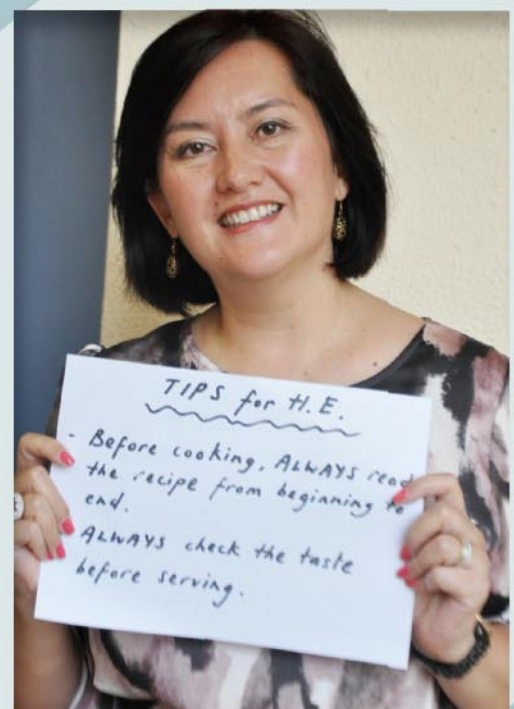 TIPS for H.E.
- Before cooking, ALWAYS read
the recipe from beginning to
end.
ALWAYS check the taste
before serving.